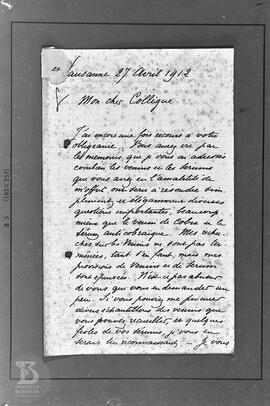 Lausanne 27 Avril 1912
Mon cher Collègue
J'ai encore une fois recours à votre
obligeance. Vous avez vu par
les mémoires que je vous ai adressés
combien les venins et les sérums
que vous avez eu l'amabilité de
m'offrir ont servi à résoudre sim-
plement et élégamment diverses
questions importantes, beaucoup
mieux que le venin de Cobra et le
sérum anticobraïque. Mes recher-
ches sur les venins ne sont pas ter-
minées, tant s'en faut, mais mes
provisions de venins et de sérum
sont épuisées. N'est-ce pas abuser
de vous que vous en demander un
peu. Si vous pouviez me fournir
divers échantillons des venins que
vous pouvez recueillir et quelques
fioles de vos sérums, je vous en
serais très reconnaissant. — Je vous
B 5 (182 X 257)